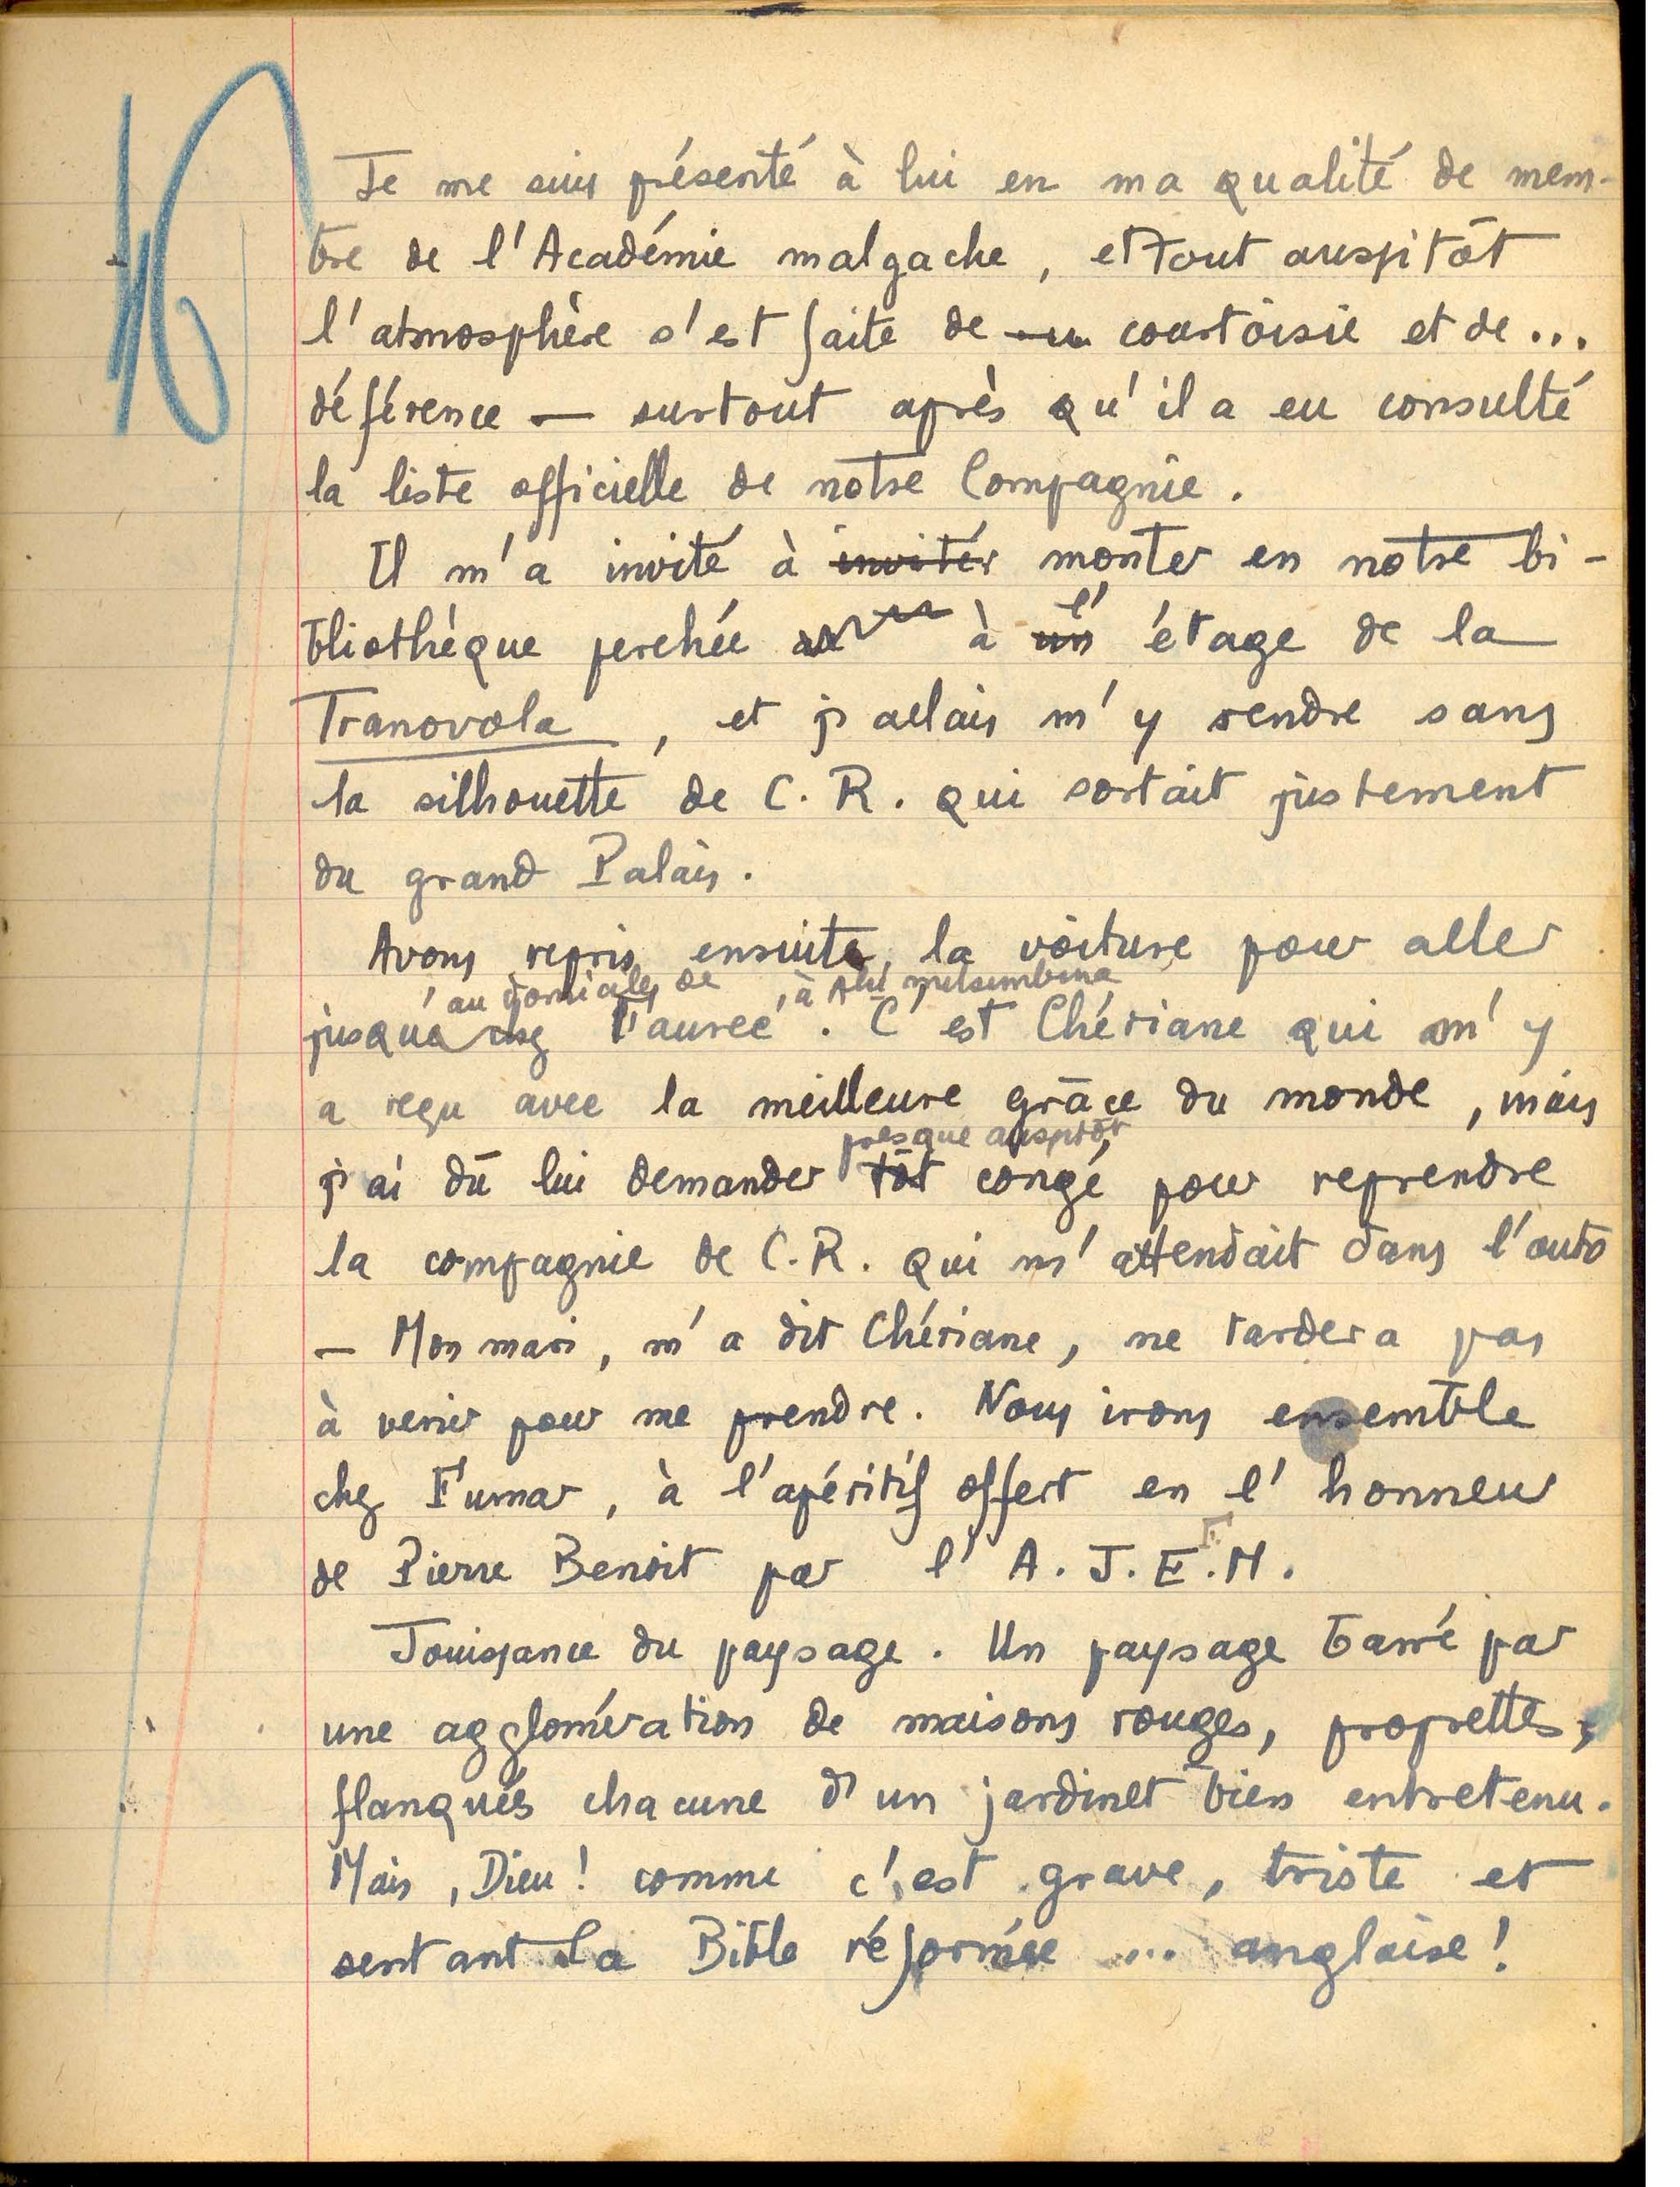 Je me suis présenté à lui en ma qualité de mem-
bre de l'Académie malgache, et tout aussitôt
l'atmosphère s'est faite de courtoisie et de...
déférence — surtout après qu'il a eu consulté
la liste officielle de notre Compagnie.
Il m'a invité à inviter monter en notre bi-
bliothèque perchée à un l'étage de la
Tranovola, et j'allais m'y rendre sans
la silhouette de C. R. qui sortait justement
du grand Palais.
Avons repris ensuite la voiture pour aller
au de , à
jusqu'à . C'est Chériane qui m'y
a reçu avec la meilleure grâce du monde, mais
presque aussitôt
j'ai dû lui demander tôt congé pour reprendre
la compagnie de C.R. qui m'attendait dans l'auto
— Mon mari, m'a dit Chériane, ne tardera pas
à venir pour me prendre. Nous irons ensemble
chez Fumar, à l'apéritif offert en l'honneur
de Pierre Benoit par l'A. J. E. F. M.
Jouissance du paysage. Un paysage barré par
une agglomération de maisons rouges, proprettes,
flanqués chacune d'un jardinet bien entretenu.
Mais, Dieu! comme c'est grave, triste et
sentant la Bible réformée ... anglaise!